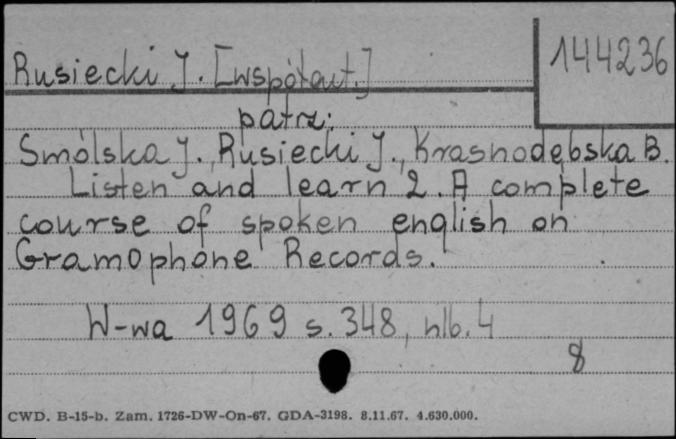 Rusiecki J. [współaut.]
144236
patrz:
Smólska J., Rusiecki J., Krasnodębska B.
Listen and learn 2. A complete
course of spoken english on
Gramophone Records.
W-wa 1969 s. 348, nlb. 4
8
CWD. B-15-b. Zam. 1726-DW-On-67. GDA-3198. 8.11.67. 4.630.000.